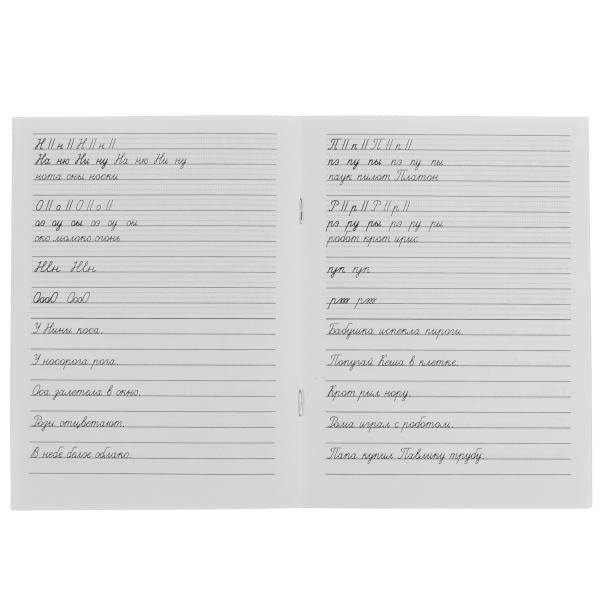 Н Н н Н Н Н н Н
На ню Ни ну На ню Ни ну
нота сны носки
О О о О О О о О
оэ оу оы оэ оу оы
око молоко огонь
Ннн Ннн
ОооО ОооО
У Нины коса.
У носорога рога.
Оса залетела в окно.
Розы отцветают.
В небе белое облако.
П П п П П П п П
пэ пу пы пэ пу пы
паук пилот Платон
Р Р р Р Р Р р Р
рэ ру ры рэ ру ры
робот крот ирис
Бабушка испекла пироги.
Попугай Кеша в клетке.
Крот рыл нору.
Рома играл с роботом.
Папа купил Павлику трубу.